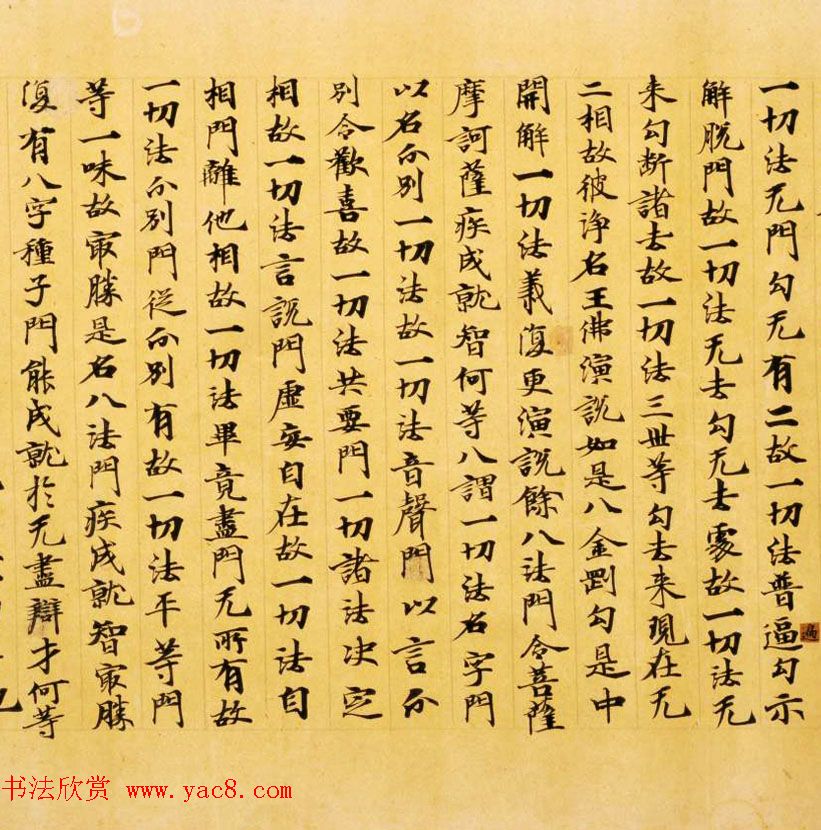 一切法无門勾无有二故一切法普逼勾示
解脱門故一切法无去勾无去處故一切法无
来勾断諸去故一切法三世等勾去来現在无
二相故彼净名王佛演説如是八金剛勾是中
開解一切法義復更演説餘八法門令菩薩
摩訶薩疾成就智何等八謂一切法名字門
以名分別一切法故一切法音聲門以言分
別令歡喜故一切法共要門一切諸法决定
相故一切法言説門虚妄自在故一切法自
相門離他相故一切法畢竟盡門无所有故
一切法分別門從分別有故一切法平等門
等一味故寂勝是名八法門疾成就智寂勝
復有八字種子門能成就於无盡辯才何等
书法欣赏 www.yac8.com